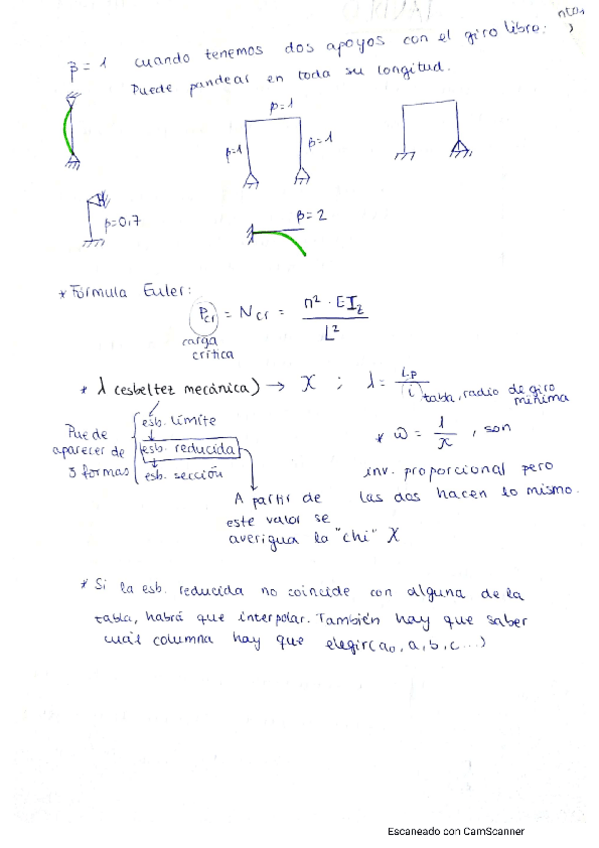 β = 1 cuando tenemos dos apoyos con el giro libre.
Puede pandear en toda su longitud.
β=1
β=1
β=1
β=0,7
β=2
* Fórmula Euler:
Pcr = Ncr = π² · EIz / L²
carga crítica
* λ (esbeltez mecánica) → X ; λ = L·β / i
tabla, radio de giro mínima
Puede aparecer de 3 formas
esb. límite
esb. reducida
esb. sección
* ω = 1 / x , son
inv. proporcional pero
las dos hacen lo mismo.
A partir de
este valor se
averigua la "chi" X
* Si la esb. reducida no coincide con alguna de la
tabla, habrá que interpolar. También hay que saber
cuál columna hay que elegir (a₀, a, b, c...)
Escaneado con CamScanner